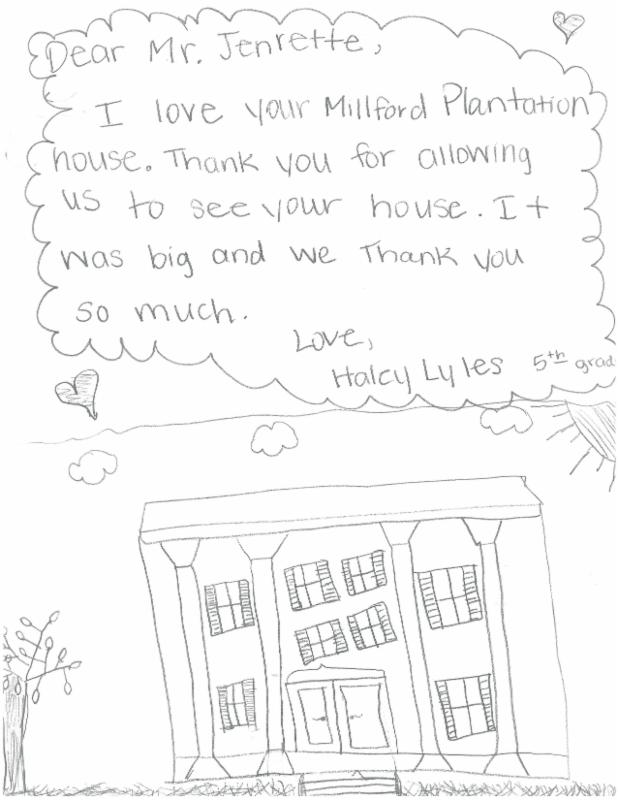 Dear Mr. Jenrette,
I love your Millford Plantation
house. Thank you for allowing
us to see your house. It
was big and we Thank you
so much.
Love,
Haley Lyles 5th grad